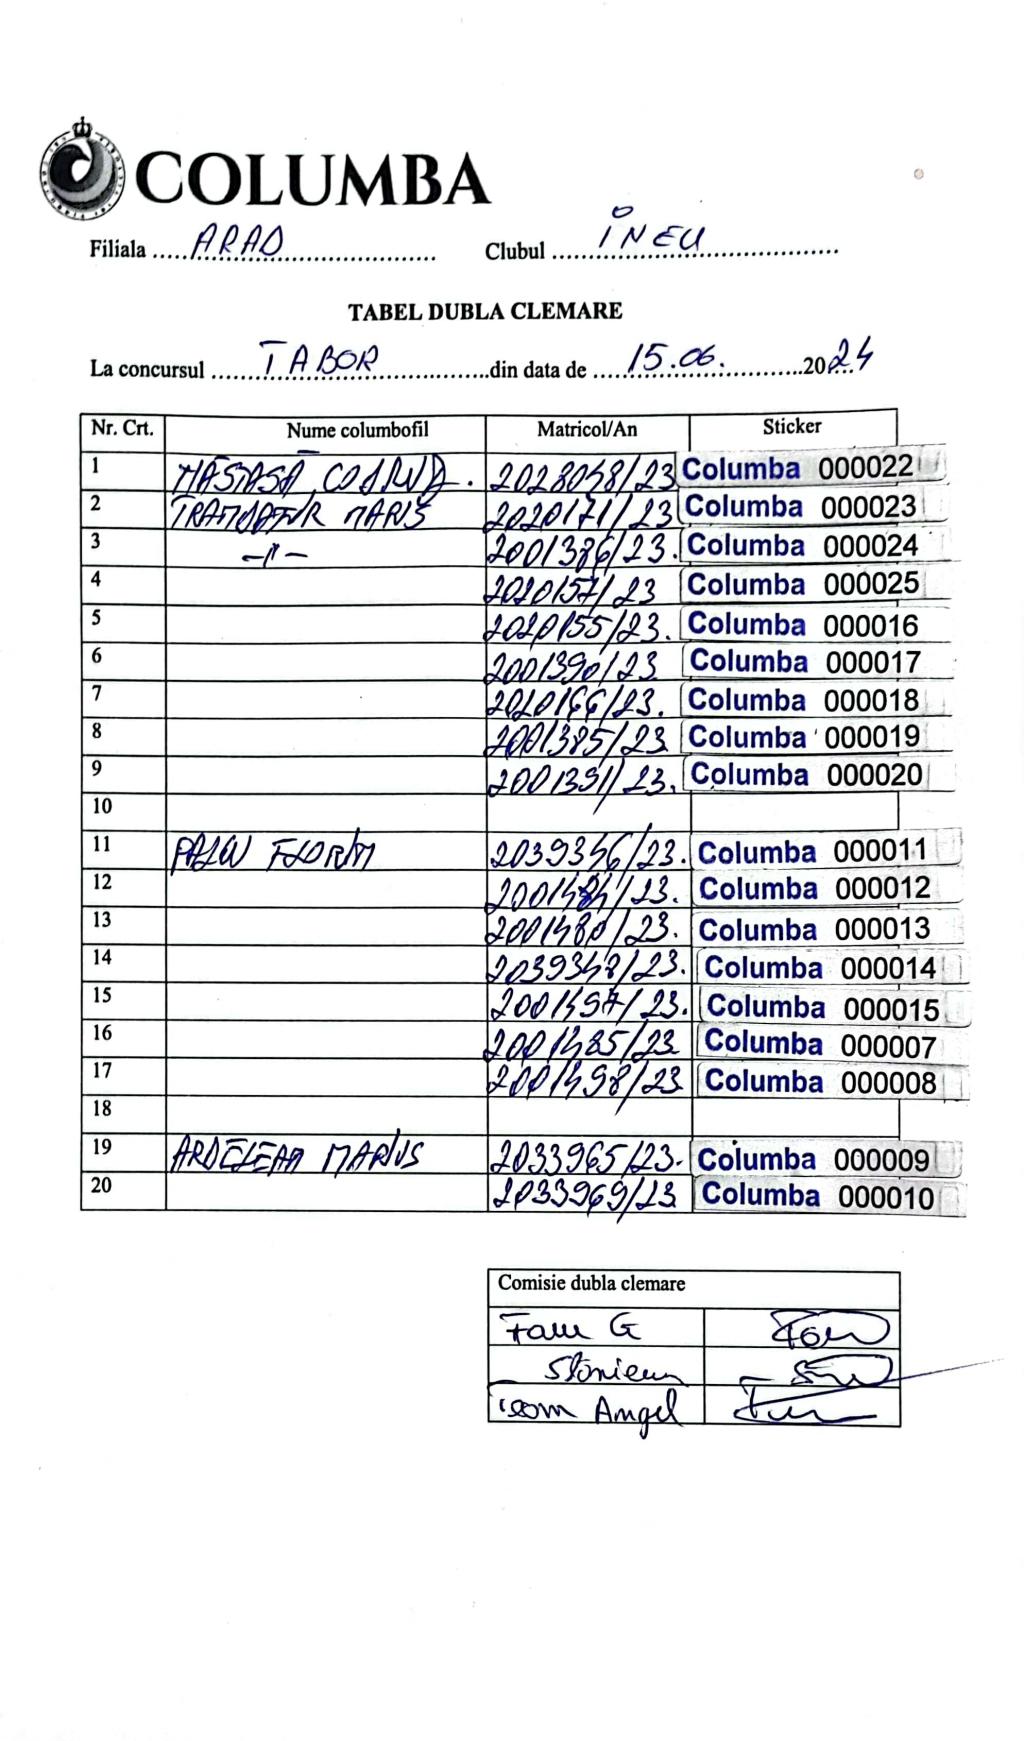 COLUMBA
Filiala ARAD Clubul INEU
TABEL DUBLA CLEMARE
La concursul TABOR din data de 15.06. 2024
Nr. Crt. Nume columbofil Matricol/An Sticker
1 2028048/23 Columba 000022
2 2020171/23 Columba 000023
3 -//- 2001386/23. Columba 000024
4 2020157/23 Columba 000025
5 2020155/23. Columba 000016
6 2001390/23 Columba 000017
7 2020166/23. Columba 000018
8 2001385/23 Columba 000019
9 2001391/23. Columba 000020
10
11 FLORIN 2039346/23. Columba 000011
12 2001484/23. Columba 000012
13 2001480/23. Columba 000013
14 2039348/23. Columba 000014
15 2001497/23. Columba 000015
16 2001485/23 Columba 000007
17 2001498/23 Columba 000008
18
19 ARDELEAN MARIUS 2033965/23. Columba 000009
20 2033969/23 Columba 000010
Comisie dubla clemare
G
Angel